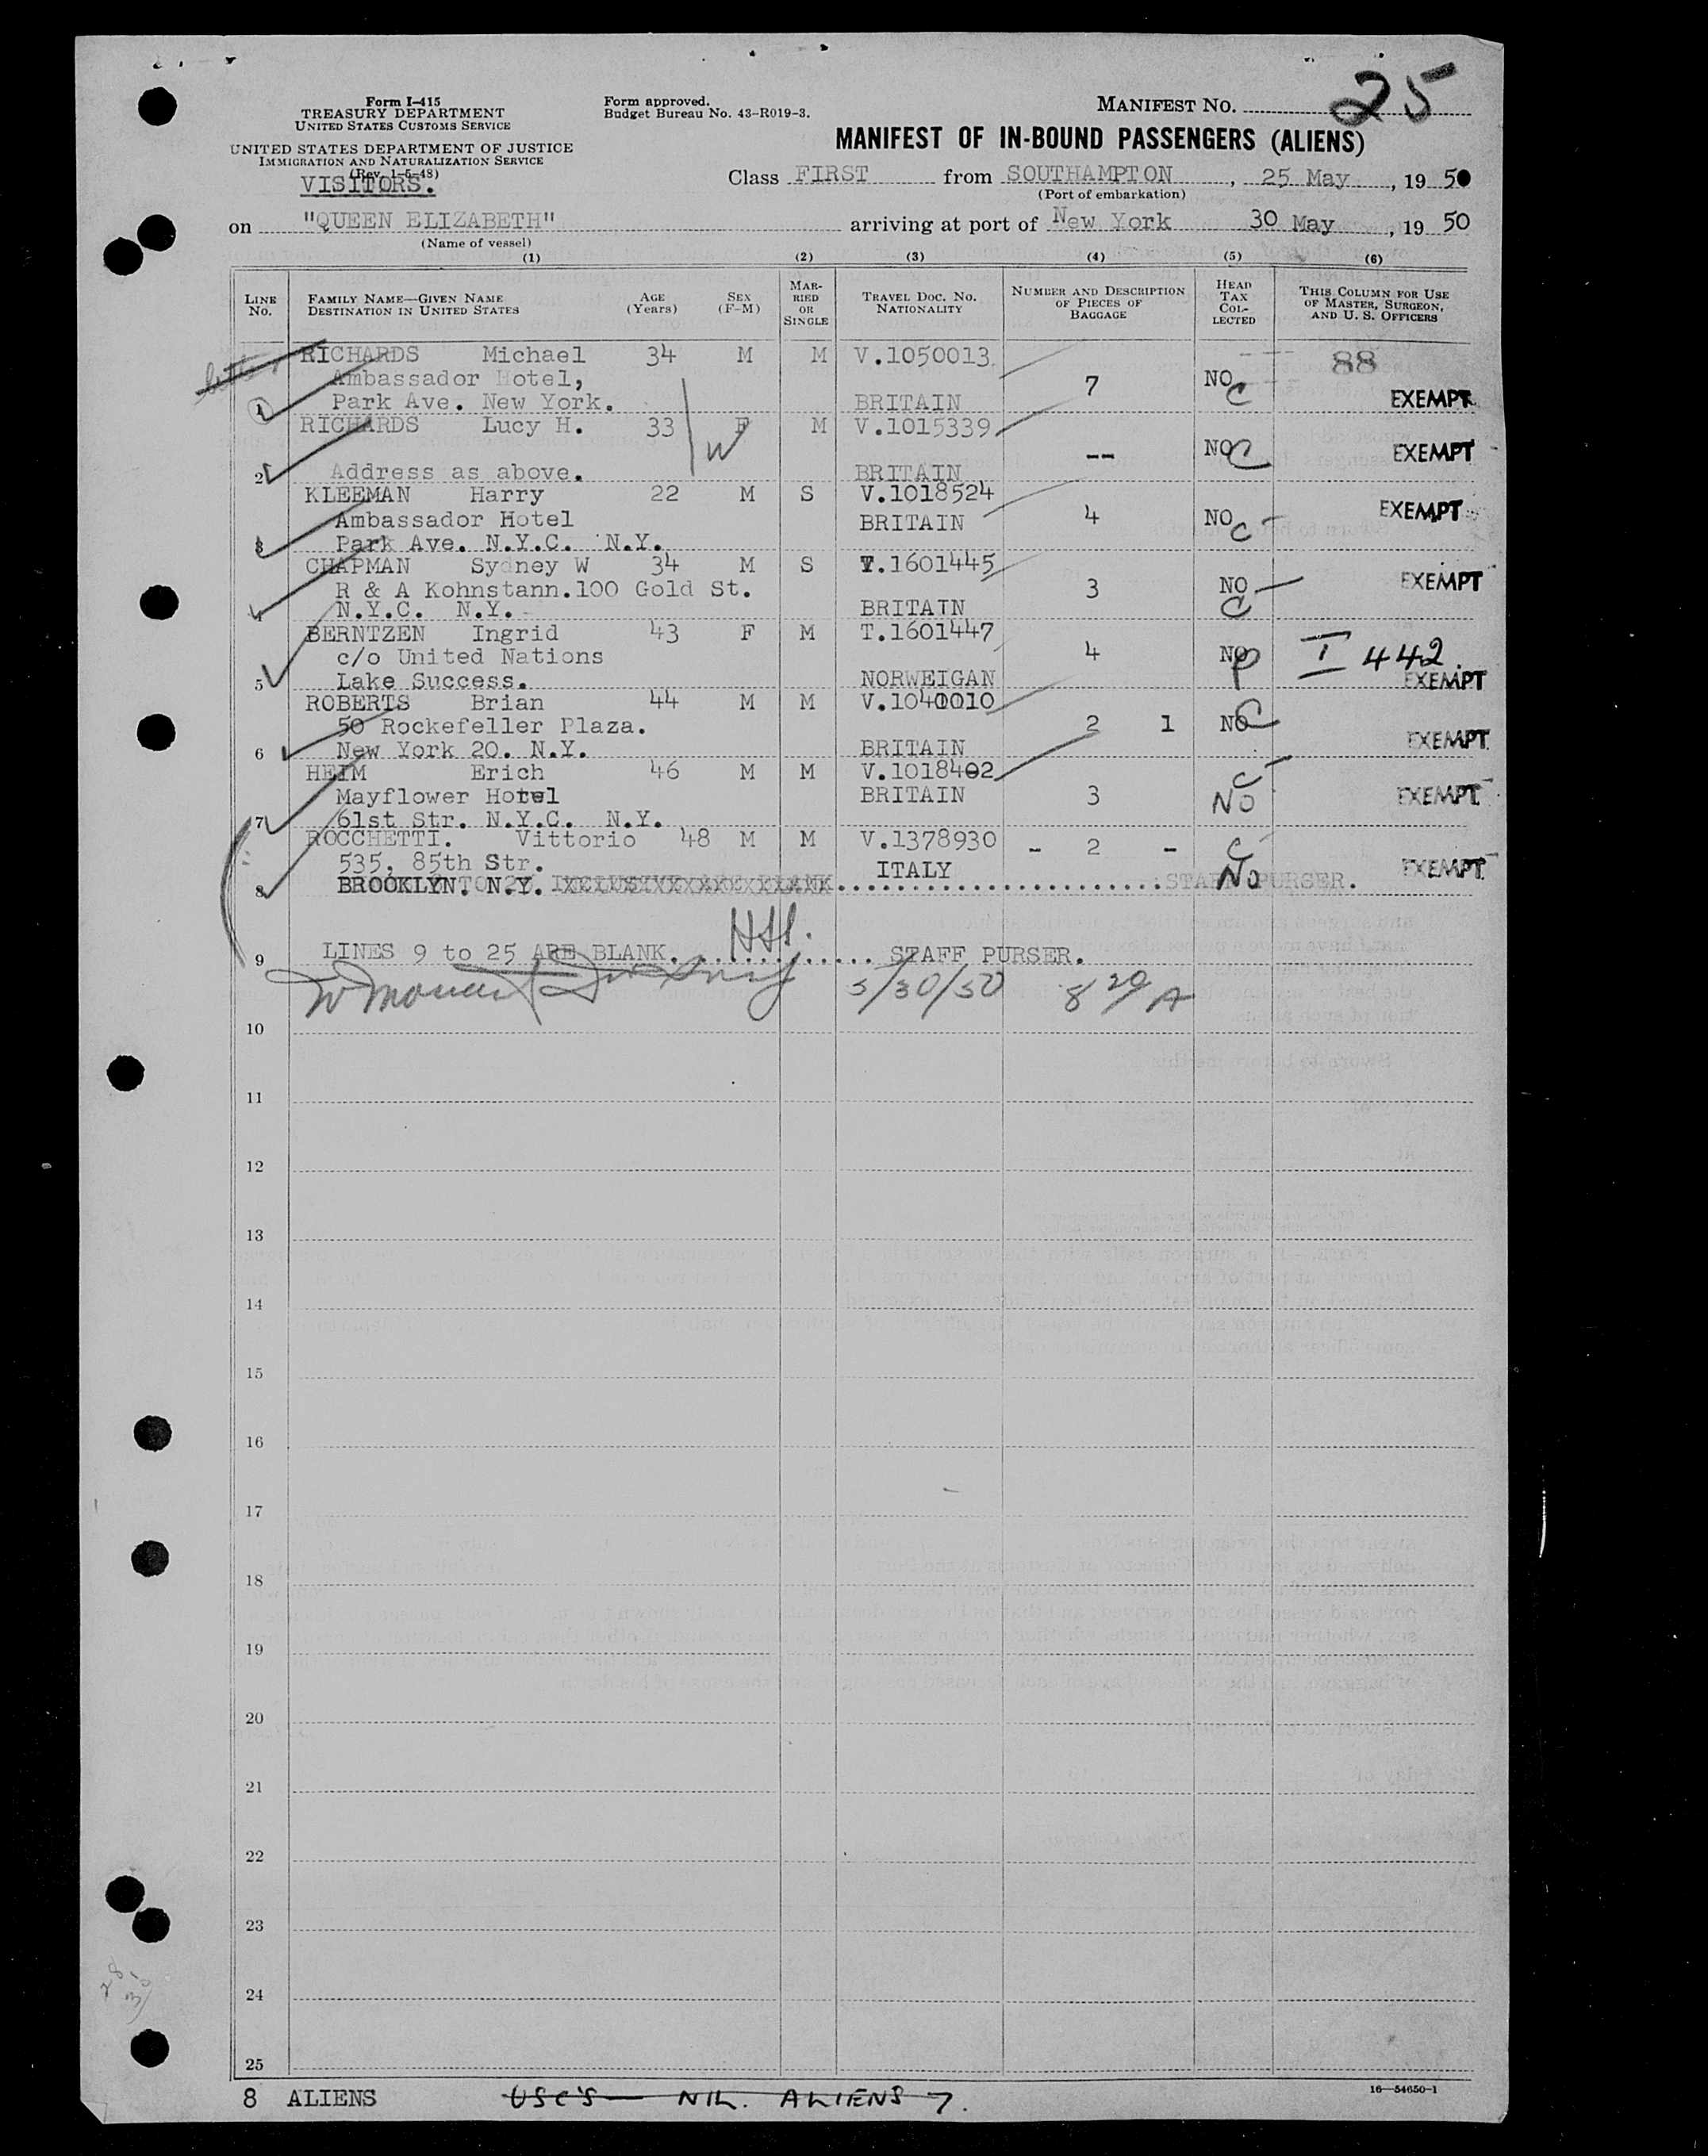 25
Form I-415
TREASURY DEPARTMENT
UNITED STATES CUSTOMS SERVICE
UNITED STATES DEPARTMENT OF JUSTICE
IMMIGRATION AND NATURALIZATION SERVICE
(Rev. 1-5-48)
VISITORS.
Form approved.
Budget Bureau No. 43-R019-3.
MANIFEST NO.
MANIFEST OF IN-BOUND PASSENGERS (ALIENS)
Class FIRST from SOUTHAMPTON, 25 May, 1950
(Port of embarkation)
on "QUEEN ELIZABETH" arriving at port of New York 30 May, 1950
(Name of vessel)
(1) (2) (3) (4) (5) (6)
LINE NO. FAMILY NAME—GIVEN NAME DESTINATION IN UNITED STATES AGE (YEARS) SEX (F-M) MARRIED OR SINGLE TRAVEL DOC. NO. NATIONALITY NUMBER AND DESCRIPTION OF PIECES OF BAGGAGE HEAD TAX COLLECTED THIS COLUMN FOR USE OF MASTER, SURGEON, AND U. S. OFFICERS
RICHARDS Michael 34 M M V.1050013 88
Ambassador Hotel, 7 NO C
1 Park Ave. New York. BRITAIN EXEMPT
RICHARDS Lucy H. 33 F M V.1015339
W -- NO C EXEMPT
2 Address as above. BRITAIN
KLEEMAN Harry 22 M S V.1018524
Ambassador Hotel BRITAIN 4 NO C EXEMPT
3 Park Ave. N.Y.C. N.Y.
CHAPMAN Sydney W 34 M S T.1601445
R & A Kohnstann.100 Gold St. 3 NO C EXEMPT
4 N.Y.C. N.Y. BRITAIN
BERNTZEN Ingrid 43 F M T.1601447
c/o United Nations 4 NO P I 442.
5 Lake Success. NORWEIGAN EXEMPT
ROBERTS Brian 44 M M V.1040010
50 Rockefeller Plaza. 2 1 NO C
6 New York 20. N.Y. BRITAIN EXEMPT
HEIM Erich 46 M M V.1018402 C
Mayflower Hotel BRITAIN 3 NO EXEMPT
7 61st Str. N.Y.C. N.Y.
ROCCHETTI. Vittorio 48 M M V.1378930 - 2 - C
535, 85th Str. ITALY No EXEMPT
8 BROOKLYN. N.Y. STAFF PURSER.
9 LINES 9 to 25 ARE BLANK. STAFF PURSER.
5/30/50 8 20 A
10
11
12
13
14
15
16
17
18
19
20
21
22
23
24
25
16—54650-1
8 ALIENS USC'S — NIL. ALIENS 7.